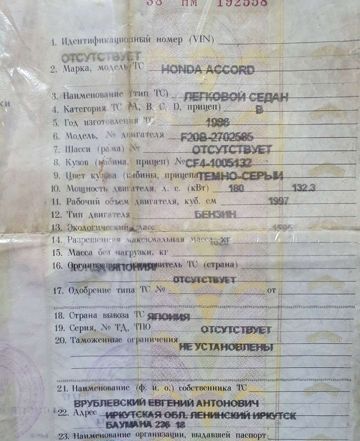 38 НМ 192558
1. Идентификационный номер (VIN)
ОТСУТСТВУЕТ
2. Марка, модель ТС HONDA ACCORD
3. Наименование (тип ТС) ЛЕГКОВОЙ СЕДАН
4. Категория ТС (А, В, С, D, прицеп) В
5. Год изготовления ТС 1998
6. Модель, № двигателя F20B-2702585
7. Шасси (рама) № ОТСУТСТВУЕТ
8. Кузов (кабина, прицеп) № CF4-1005132
9. Цвет кузова (кабины, прицепа) ТЕМНО-СЕРЫЙ
10. Мощность двигателя, л. с. (кВт) 180 132.3
11. Рабочий объем двигателя, куб. см 1997
12. Тип двигателя БЕНЗИН
13. Экологический класс
14. Разрешенная максимальная масса, кг
15. Масса без нагрузки, кг
16. Организация-изготовитель ТС (страна)
ЯПОНИЯ
ОТСУТСТВУЕТ
17. Одобрение типа ТС № от
18. Страна вывоза ТС ЯПОНИЯ
19. Серия, № ТД, ТПО ОТСУТСТВУЕТ
20. Таможенные ограничения
НЕ УСТАНОВЛЕНЫ
21. Наименование (ф. и. о.) собственника ТС
ВРУБЛЕВСКИЙ ЕВГЕНИЙ АНТОНОВИЧ
22. Адрес ИРКУТСКАЯ ОБЛ. ЛЕНИНСКИЙ ИРКУТСК
БАУМАНА 226 18
23. Наименование организации, выдавшей паспорт